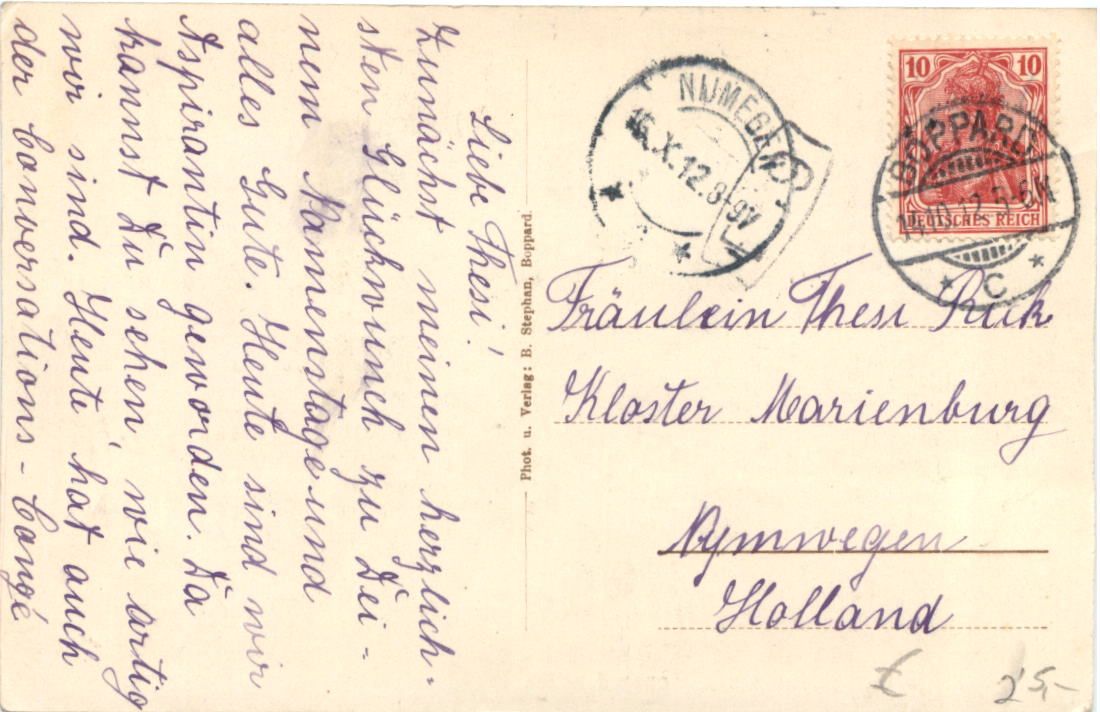 Liebe Thesi!
Zunächst meinen herzlich-
sten Glückwunch zu Dei-
nem Namenstage und
alles Gute. Heute sind wir
Aspirantin geworden. Da
kannst Du sehen, wie artig
wir sind. Heute hat auch
der Conversations-Congé
Phot. u. Verlag: B. Stephan, Boppard.
NIJMEGEN
16.X.12.8-9V
8
10 10
DEUTSCHES REICH
BOPPARD
14.10.12.5-6N
* C *
Fräulein Thesi
Kloster Marienburg
Nymwegen
Holland
€ 25,-